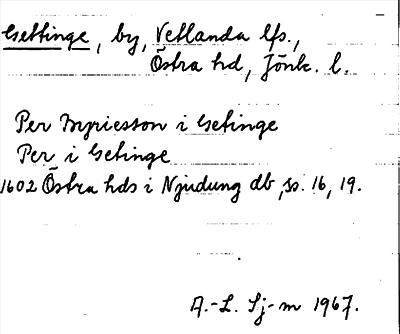 Gettinge, by, Vetlanda lfs.,
Östra hd, Jönk. l.
Per Myriesson i Getinge
Per i Getinge
1602 Östra hds i Njudung db, ss. 16, 19.
A.-L. Sj-m 1967.